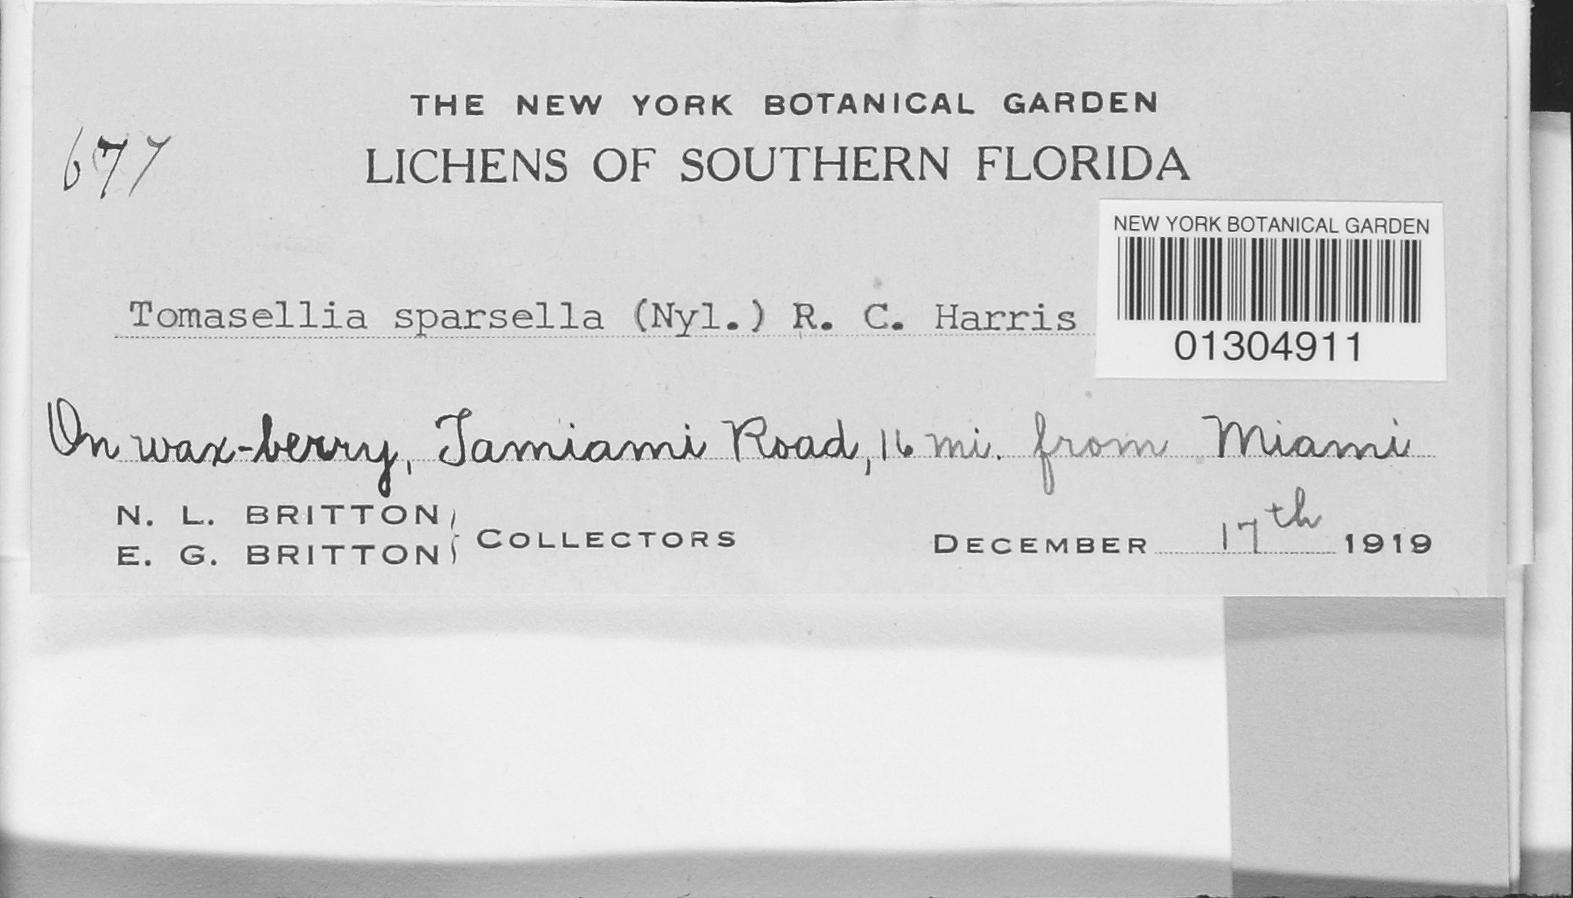 THE NEW YORK BOTANICAL GARDEN
677
LICHENS OF SOUTHERN FLORIDA
NEW YORK BOTANICAL GARDEN
01304911
Tomasellia sparsella (Nyl.) R. C. Harris
On wax-berry, Tamiami Road, 16 mi. from Miami
N. L. BRITTON
E. G. BRITTON
COLLECTORS
DECEMBER 17th 1919